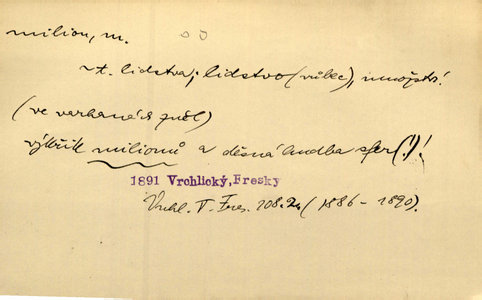 milion, m.
vt. lidstva; lidstvo (vůbec), množství
(ve varhanách zněl)
výkřik milionů a děsná hudba sfer(!)!
1891 Vrchlický, Fresky
Vrchl. V. Fres. 108.2. (1886-1890).